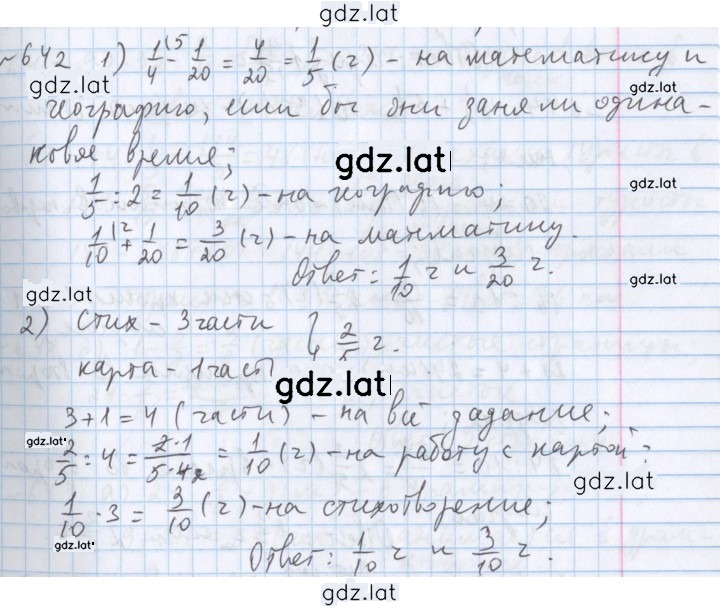 gdz.lat
№642 1) 1/4 - 1/20 = 4/20 = 1/5 (ч) - на математику и
gdz.lat
географию, если бы они заняли одина-
gdz.lat
ковое время;
gdz.lat
gdz.lat
1/5 : 2 = 1/10 (ч) - на географию;
1/10 + 1/20 = 3/20 (ч) - на математику.
Ответ: 1/10 ч и 3/20 ч.
gdz.lat
gdz.lat
2) Стих - 3 части } 2/5 ч.
карта - 1 часть
gdz.lat
3+1=4 (части) - на всё задание;
gdz.lat
2/5 : 4 = 2·1/5·4 2 = 1/10 (ч) - на работу с картой;
gdz.lat
1/10 · 3 = 3/10 (ч) - на стихотворение;
gdz.lat
Ответ: 1/10 ч и 3/10 ч.
gdz.lat